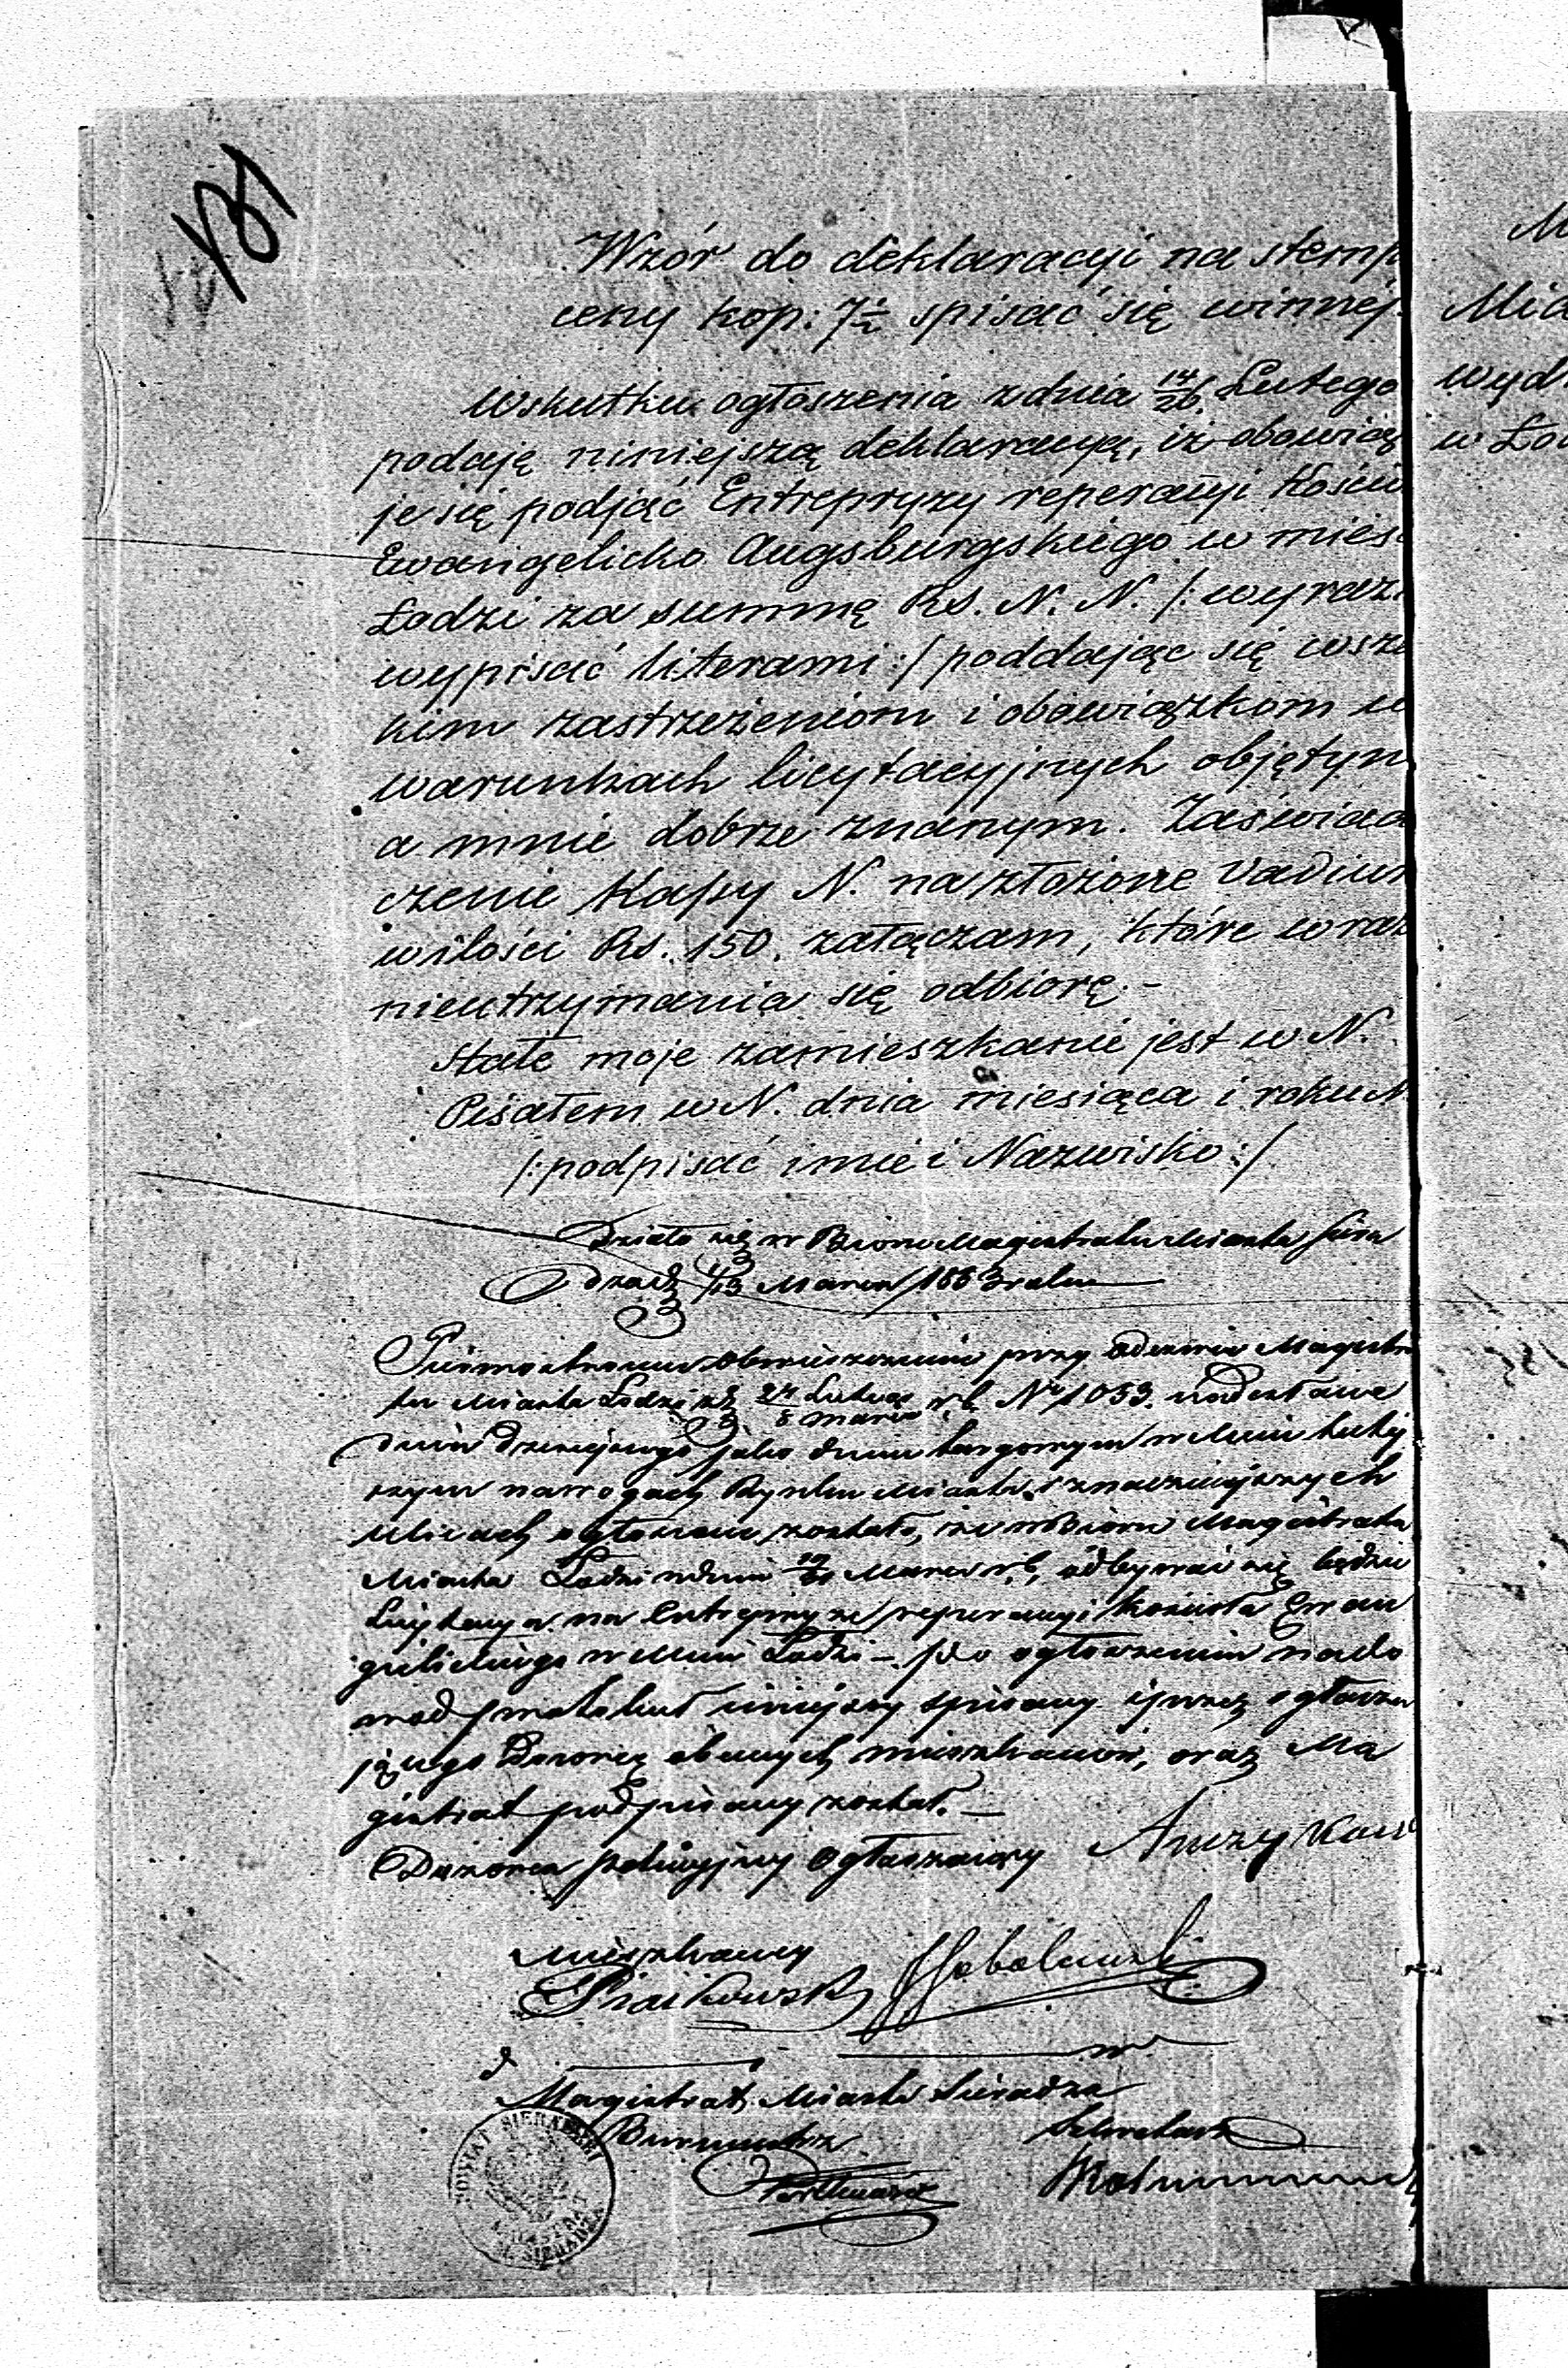 131
Wzór do deklaracyi na stemp
ceny kop: 7½ spisać się winnéj.
Wskutku ogłoszenia z dnia 14/26 Lutego
podaję niniejszą deklaracyą, iż obowięz
je się podjąć Entrepryzy reperacyi Kościo
Ewangelicko Augsburgskiego w mieś
Łodzi za summę Rs. N. N. /: wyrazi
wypisać literami :/ poddając się wsze
kim zastrzeżeniom i obowiązkom w
warunkach licytacyjnych objętym
a mnie dobrze znanym. Zaświad
czenie Kassy N. na złożone Vadium
w ilości Rs. 150. załączam, które w raz
nieutrzymania się odbiorę. –
Stałe moje zamieszkanie jest w N.
Pisałem w N. dnia miesiąca i roku N
/: podpisać imie i Nazwisko :/
Działo się w Biórze Magistratu Miasta Siera
dza d. 1/13 Marca 1863 roku
obwieszczenie przy odezwie Magistra
tu Miasta Łodzi z d. 24 Lutego / 8 Marca r. b. Nr 1053. nadesłane
dnia dzisiejszego jako dniu targowym w Mieście tutej
szym na rogach Rynku Miasta i znaczniejszych
Ulicach ogłoszone zostało, że w Biórze Magistratu
Miasta Łodzi w dniu 19/31 Marca r. b. odbywać się będzie
Licytacya na Entrepryze reperacyi Kościoła Ewan
gielickiego w Mieście Łodzi –. Po ogłoszeniu na do
wód protokuł niniejszy spisany i przez ogłasza
jącego Dozorcę obecnych mieszkańców, oraz Ma
gistrat podpisany został. –
Dozorca policyjny ogłaszający
Mieszkańcy
Sobolewski
Magistrat Miasta Sieradza
Burmistrz Sekretarz